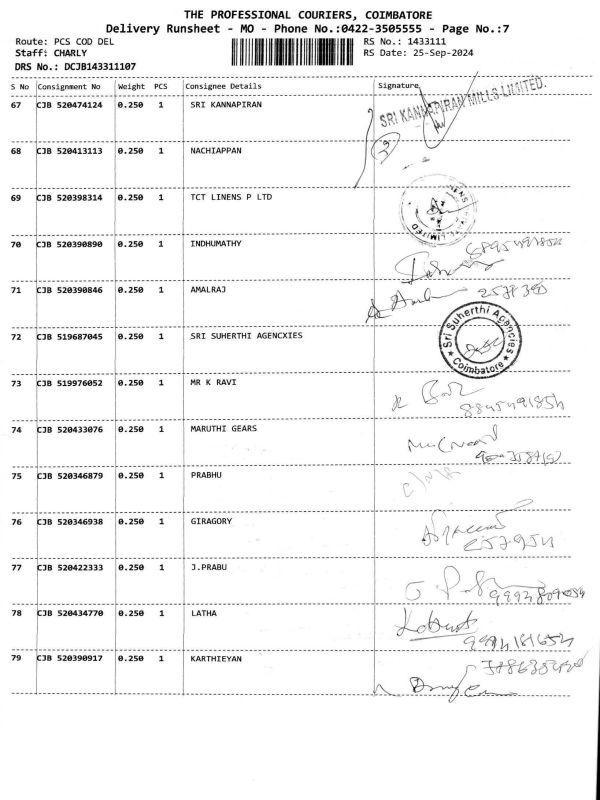 THE PROFESSIONAL COURIERS, COIMBATORE
Delivery Runsheet - MO - Phone No.:0422-3505555 - Page No.:7
Route: PCS COD DEL RS No.: 1433111
Staff: CHARLY RS Date: 25-Sep-2024
DRS No.: DCJB143311107
S No Consignment No Weight PCS Consignee Details Signature
67 CJB 520474124 0.250 1 SRI KANNAPIRAN SRI KANNAPIRAN MILLS LIMITED.
68 CJB 520413113 0.250 1 NACHIAPPAN
69 CJB 520398314 0.250 1 TCT LINENS P LTD LIMITED
70 CJB 520390890 0.250 1 INDHUMATHY
71 CJB 520390846 0.250 1 AMALRAJ
72 CJB 519687045 0.250 1 SRI SUHERTHI AGENCXIES Sri Suherthi Agencies ★ Coimbatore ★
73 CJB 519976052 0.250 1 MR K RAVI
74 CJB 520433076 0.250 1 MARUTHI GEARS
75 CJB 520346879 0.250 1 PRABHU
76 CJB 520346938 0.250 1 GIRAGORY
77 CJB 520422333 0.250 1 J.PRABU
78 CJB 520434770 0.250 1 LATHA
79 CJB 520390917 0.250 1 KARTHIEYAN